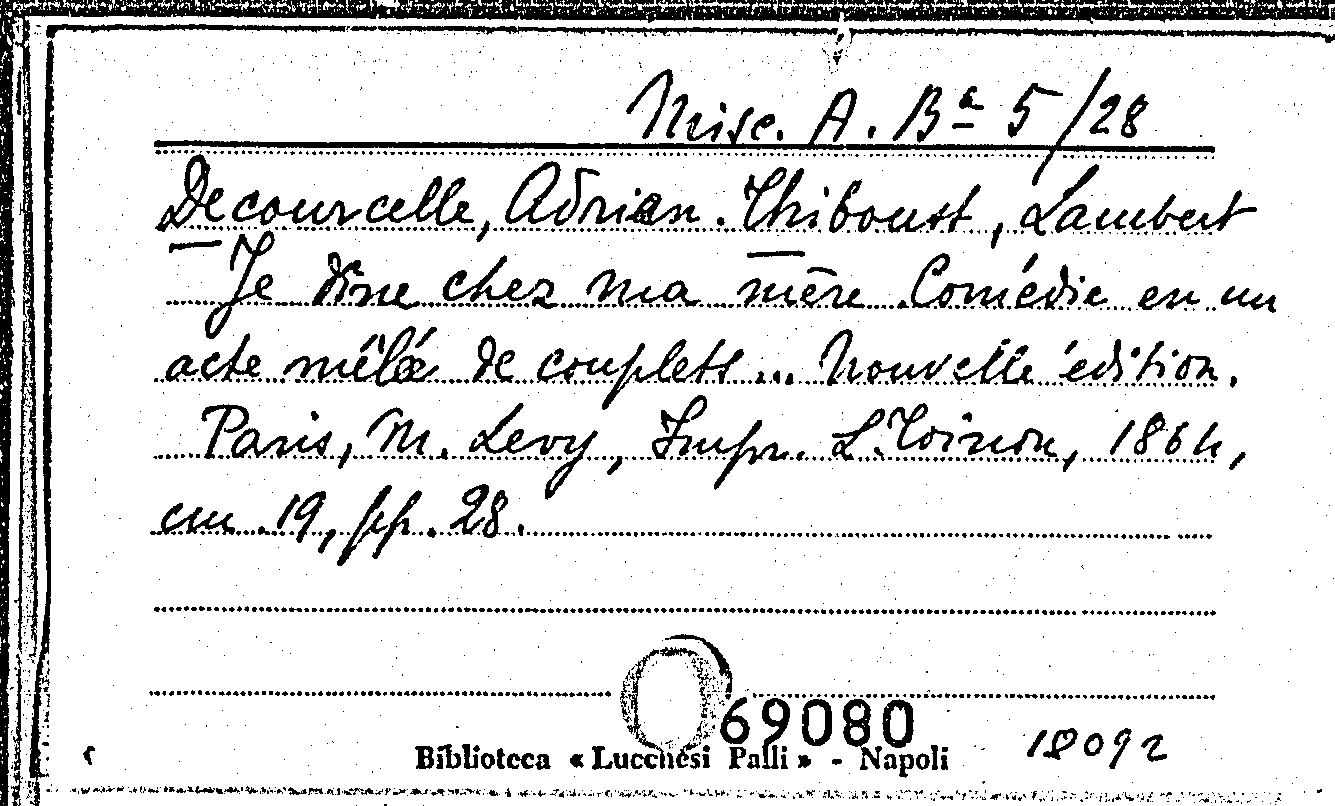 Misc. A. Bª 5/28
Decourcelle, Adrien. Thiboust, Lambert
Je dîne chez ma mère. Comédie en un
acte mêlée de couplets ... Nouvelle édition.
Paris, M. Levy, Impr. L. Toinon, 1864,
cm. 19, pp. 28.
69080
18092
Biblioteca « Lucchesi Palli » - Napoli